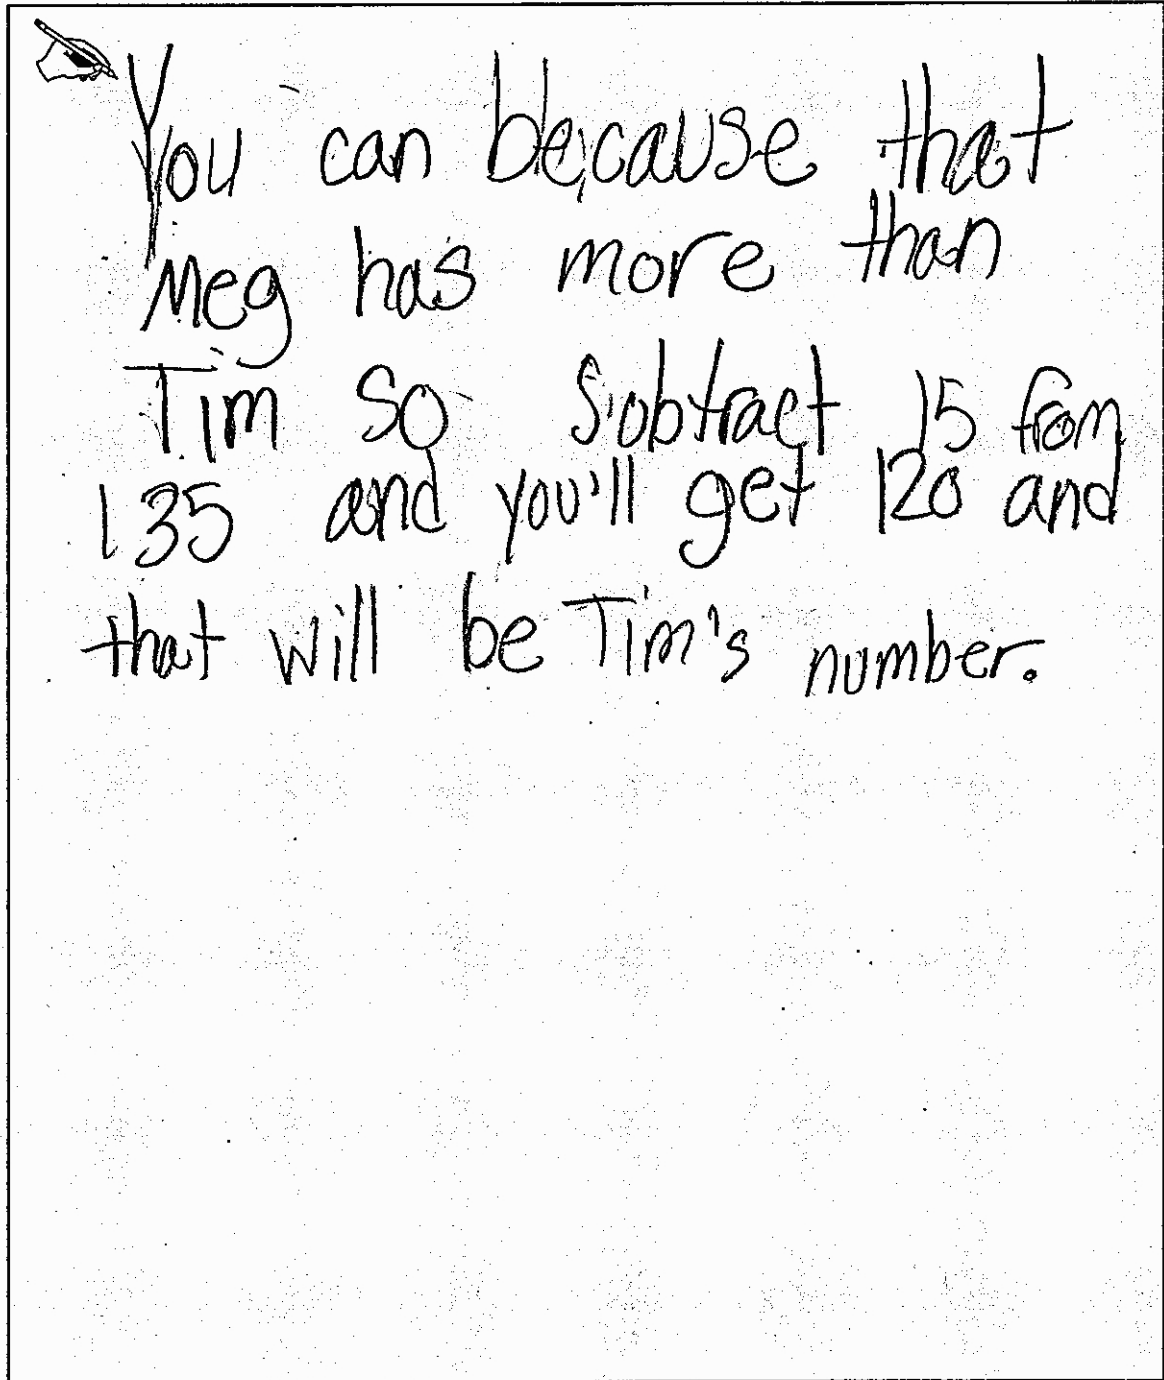 You can because that
Meg has more than
Tim so subtract 15 from
135 and you'll get 120 and
that will be Tim's number.